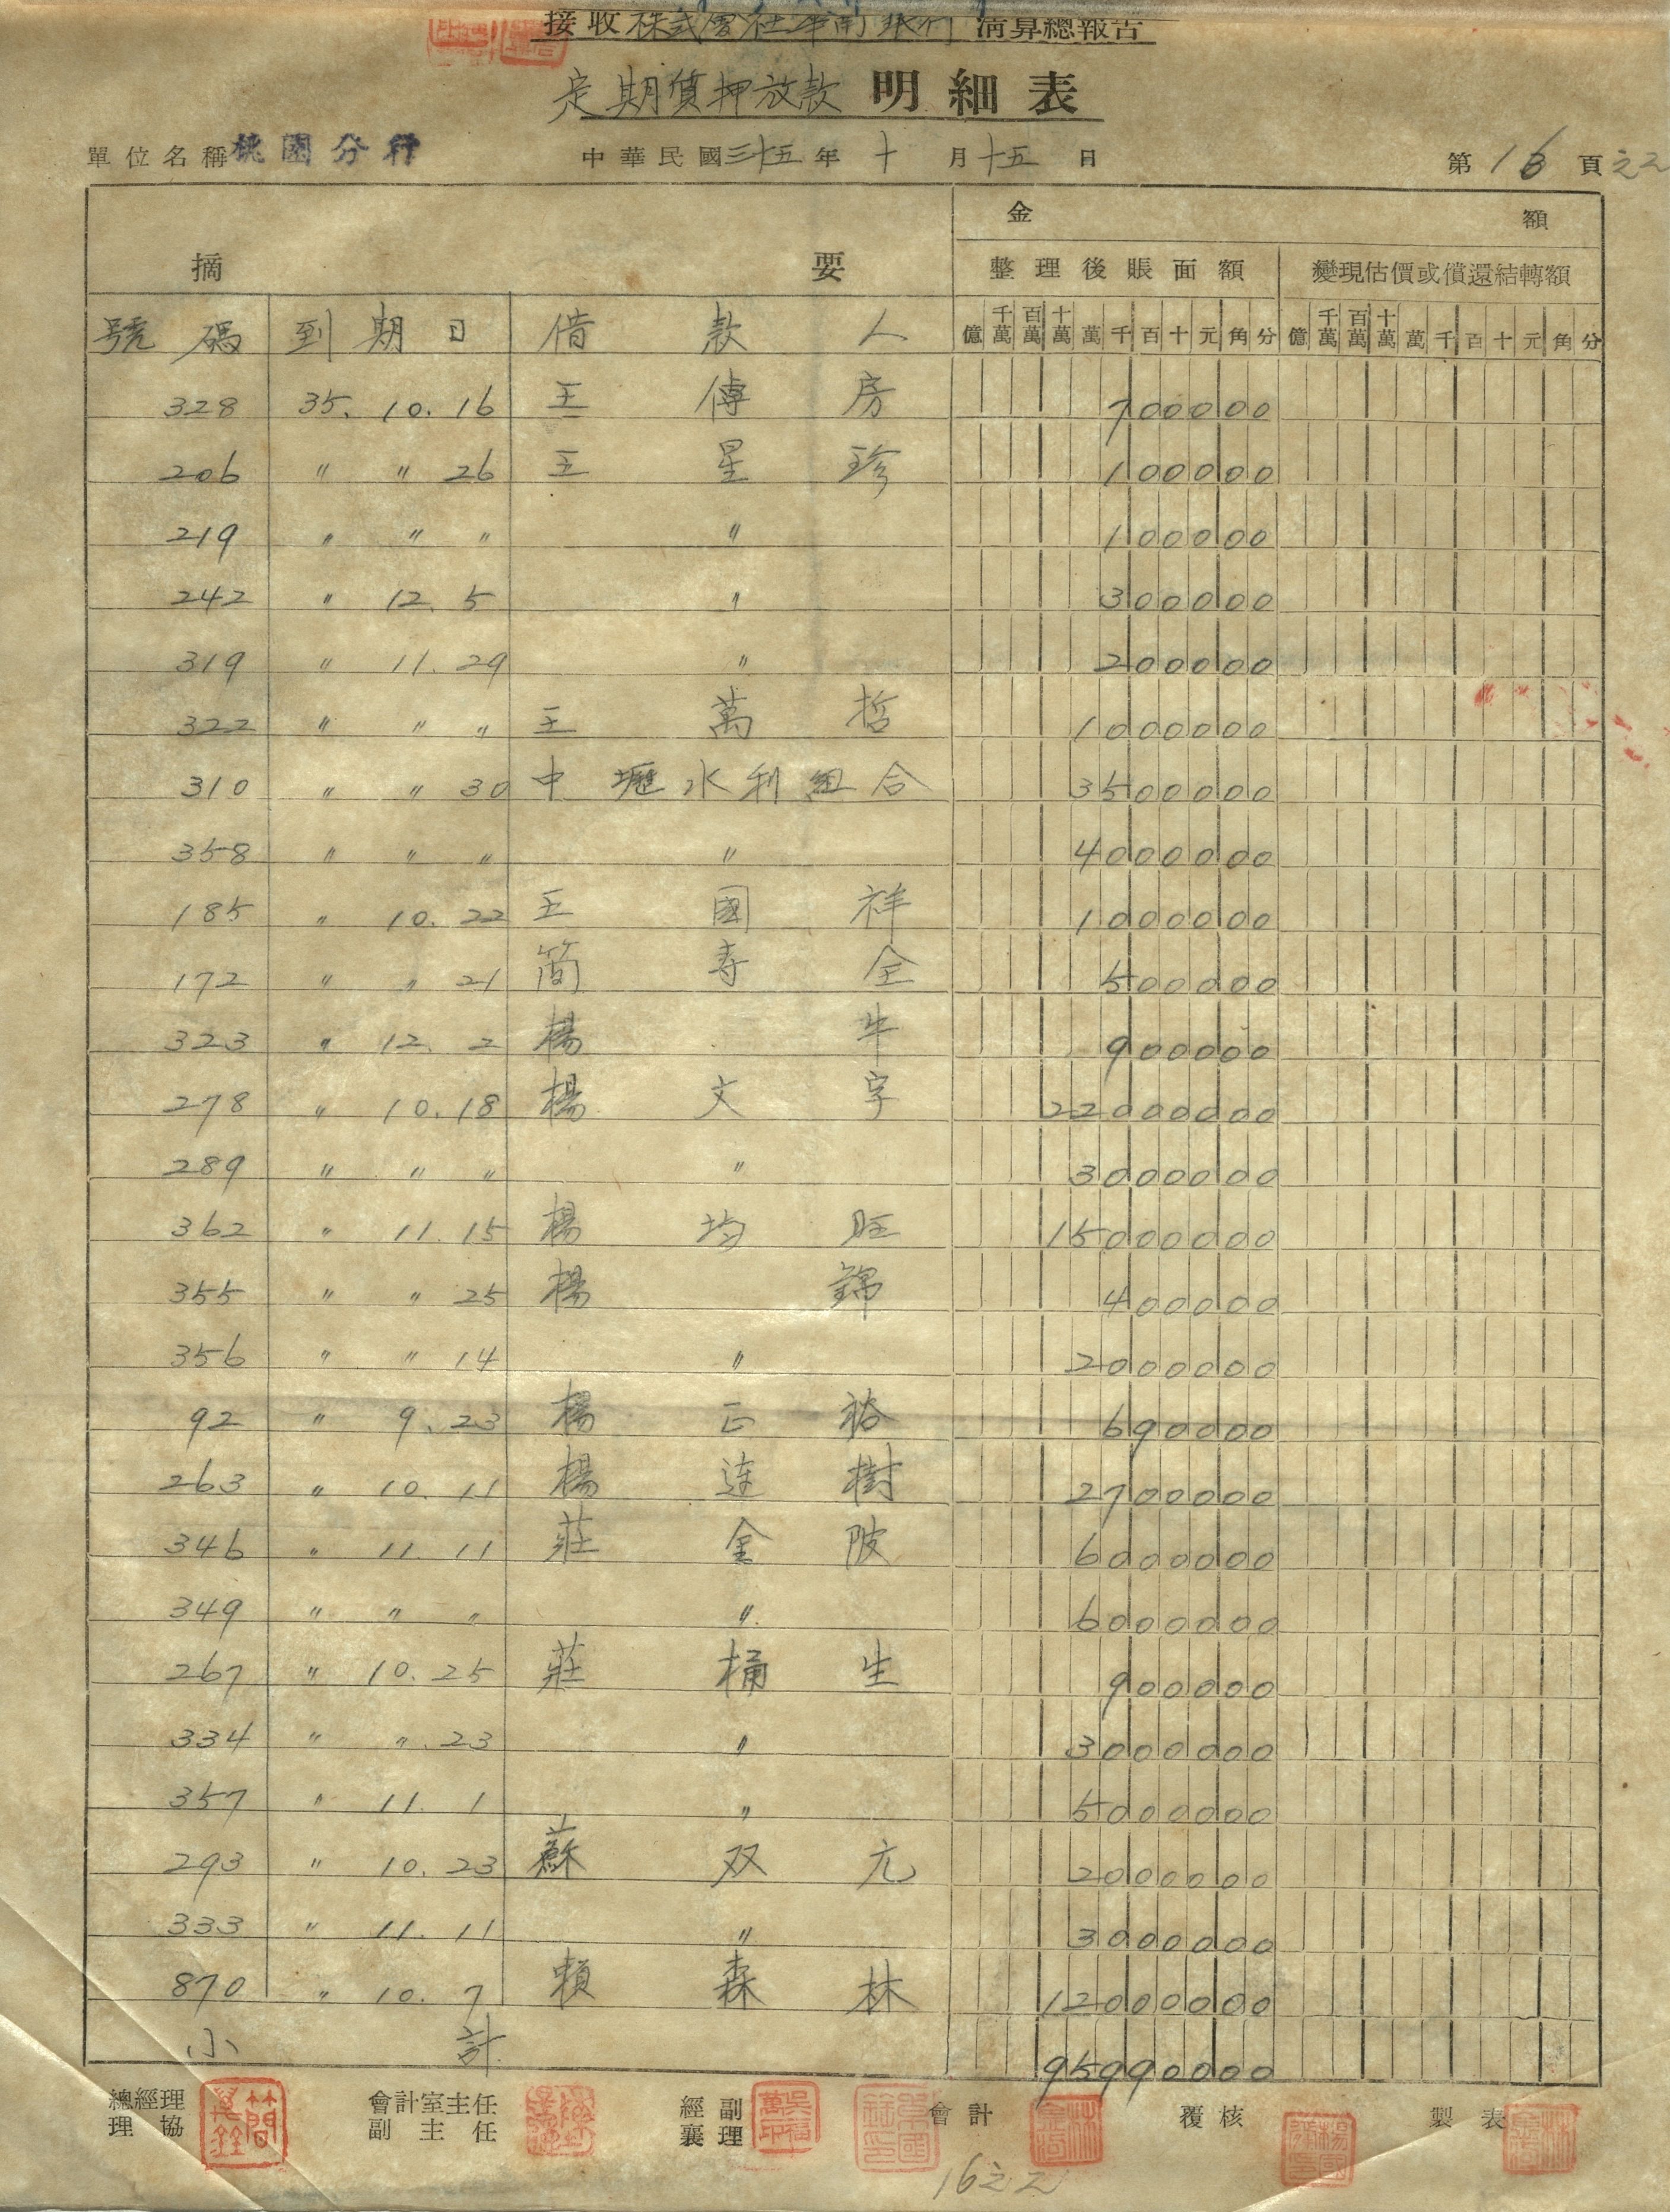 接收株式會社華南銀行清算總報告
定期質押放款明細表
單位名稱 桃園分行 中華民國三十五年十月十五日 第16頁之二
金額
摘要 整理後賬面額 變現估價或償還結轉額
號碼 到期日 借款人 億 千萬 百萬 十萬 萬 千 百 十 元 角 分 億 千萬 百萬 十萬 萬 千 百 十 元 角 分
328 35. 10. 16 王傳房 700000
206 〃 〃 26 王星珍 100000
219 〃 〃 〃 〃 100000
242 〃 12. 5 〃 300000
319 〃 11. 29 〃 200000
322 〃 〃 〃 王萬哲 1000000
310 〃 〃 30 中壢水利組合 3500000
358 〃 〃 〃 〃 4000000
185 〃 10. 22 王國祥 1000000
172 〃 〃 21 簡寿全 500000
323 〃 12. 2 楊牛 900000
278 〃 10. 18 楊文字 22000000
289 〃 〃 〃 〃 3000000
362 〃 11. 15 楊均旺 15000000
355 〃 〃 25 楊錦 400000
356 〃 〃 14 〃 2000000
92 〃 9. 23 楊正裕 690000
263 〃 10. 11 楊连樹 2700000
346 〃 11. 11 莊金陂 6000000
349 〃 〃 〃 〃 6000000
267 〃 10. 25 莊桶生 900000
334 〃 〃 23 〃 3000000
357 〃 11. 1 〃 5000000
293 〃 10. 23 蘇双亢 2000000
333 〃 11. 11 〃 3000000
870 〃 10. 7 賴森林 12000000
小計 95990000
總經理 會計室主任 經副 會計 覆核 製表
理協 副主任 襄理
16之二